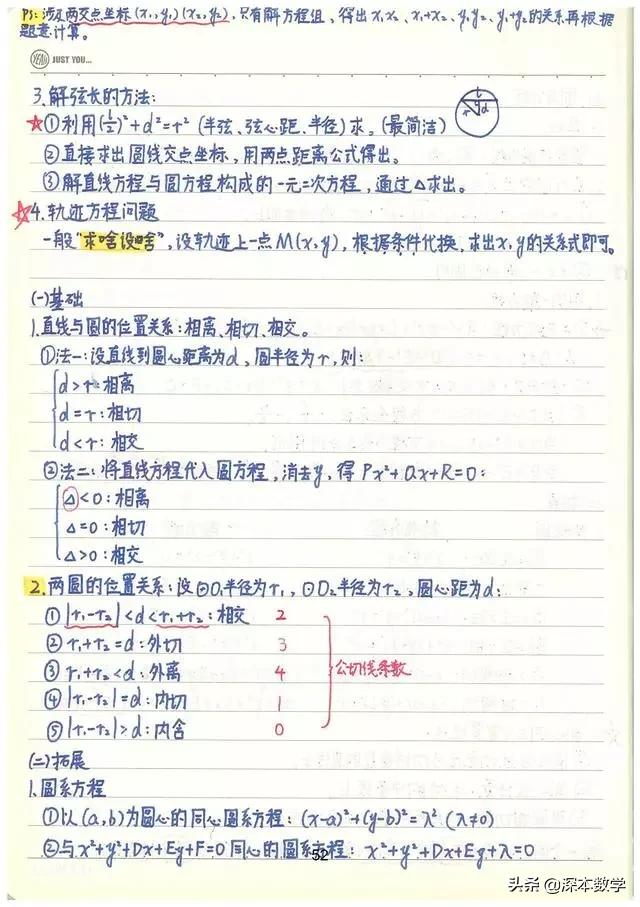 PS: 涉及两交点坐标(x₁,y₁)(x₂,y₂), 只有解方程组, 得出x₁x₂、x₁+x₂、y₁y₂、y₁+y₂的关系再根据
题意计算。
YEAH JUST YOU...
3. 解弦长的方法:
☆①利用(t/2)²+d²=r² (半弦、弦心距、半径)求。(最简洁)
t r d
②直接求出圆线交点坐标, 用两点距离公式得出。
③解直线方程与圆方程构成的一元二次方程, 通过△求出。
☆4. 轨迹方程问题
一般"求啥设啥", 设轨迹上一点M(x,y), 根据条件代换, 求出x,y的关系式即可。
(一)基础
1. 直线与圆的位置关系: 相离、相切、相交。
①法一: 设直线到圆心距离为d, 圆半径为r, 则:
d>r: 相离
d=r: 相切
d<r: 相交
②法二: 将直线方程代入圆方程, 消去y, 得Px²+Qx+R=0:
△<0: 相离
△=0: 相切
△>0: 相交
2. 两圆的位置关系: 设⊙O₁半径为r₁, ⊙O₂半径为r₂, 圆心距为d:
①|r₁-r₂|<d<r₁+r₂: 相交 2
②r₁+r₂=d: 外切 3
③r₁+r₂<d: 外离 4 公切线条数
④|r₁-r₂|=d: 内切 1
⑤|r₁-r₂|>d: 内含 0
(二)拓展
1. 圆系方程
①以(a,b)为圆心的同心圆系方程: (x-a)²+(y-b)²=λ² (λ≠0)
②与x²+y²+Dx+Ey+F=0同心的圆系方程: x²+y²+Dx+Ey+λ=0
52
头条@深本数学